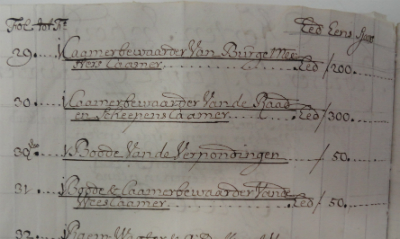 Fol. tot
29.... 1 Caamerbewaarder Van Burge Mee
ster Caamer ........ Led / 200.
30.... 1 Caamerbewaarder Vande Raad
en Scheepens Caamer ..... Led / 300.
30 .... 1 Boode Vande Verpondingen / 50.
31.... 1 Boode & Caamerbewaarder Vande
Wees Caamer ........ Led / 50.